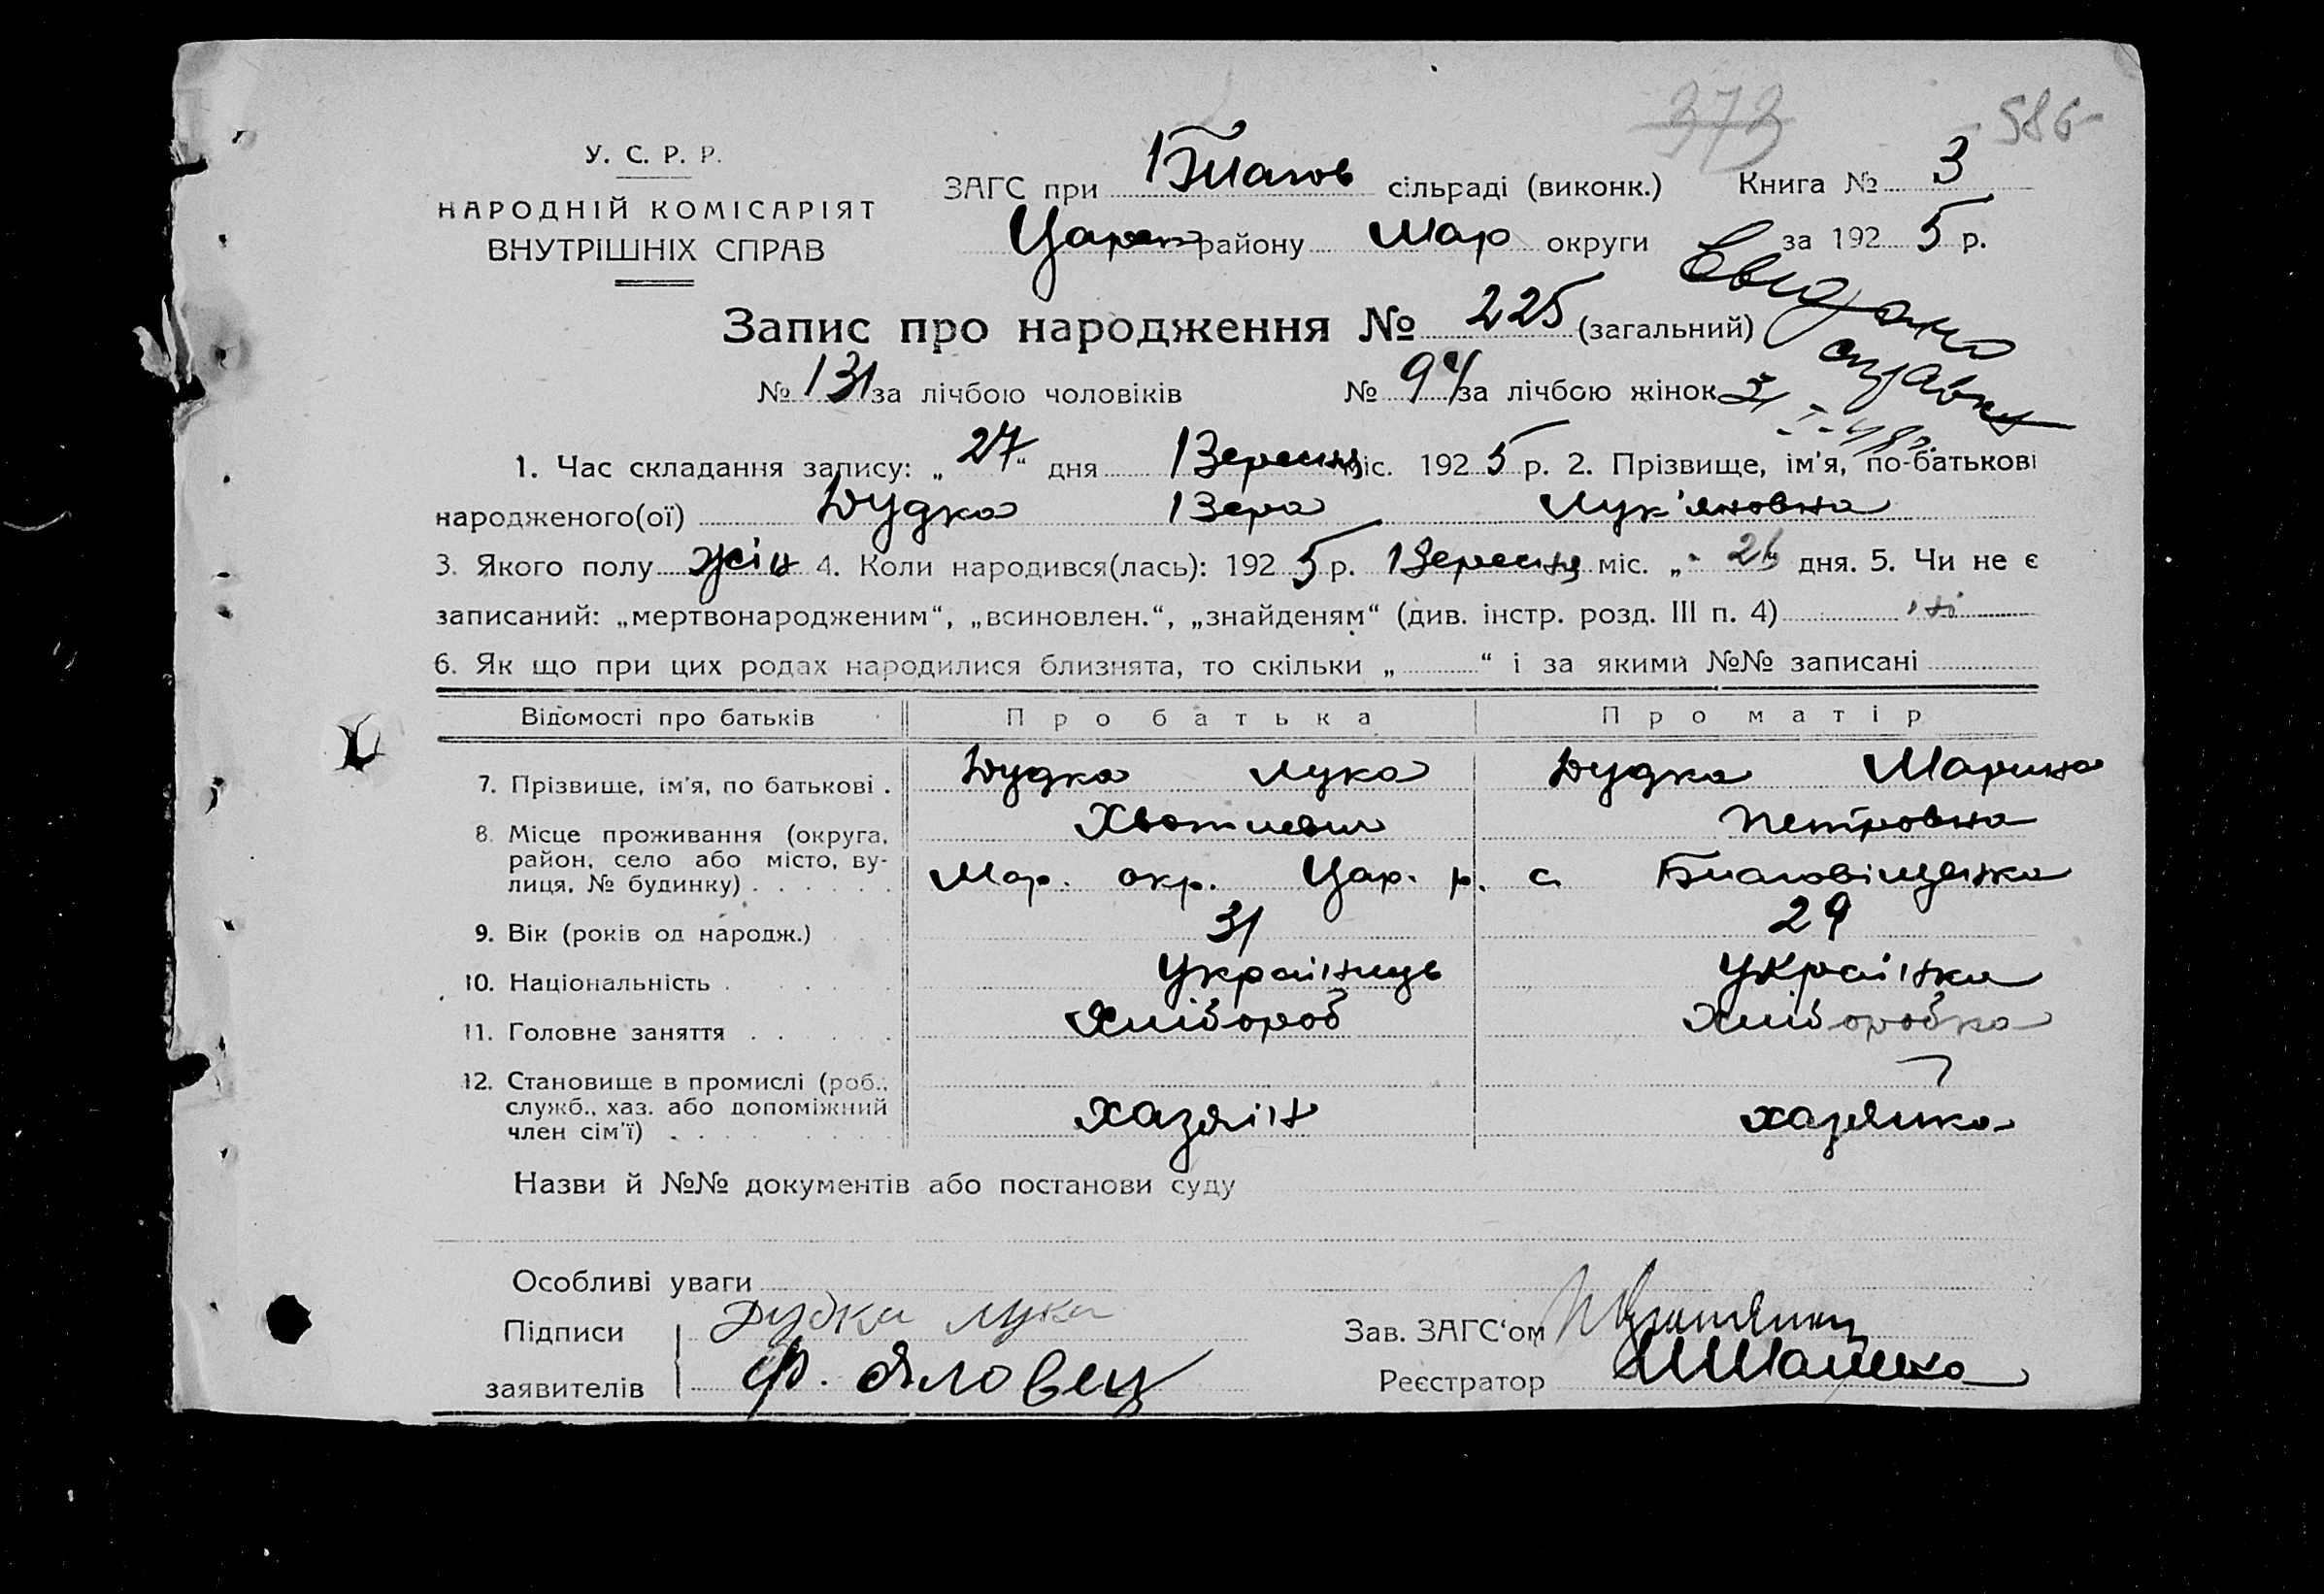 373 586
У. С. Р. Р.
НАРОДНІЙ КОМІСАРІЯТ
ВНУТРІШНІХ СПРАВ
ЗАГС при Благов сільраді (виконк.) Книга № 3
Царек району Мар округи за 1925 р.
Запис про народження № 225 (загальний)
Видано
справку
№ 131 за лічбою чоловіків № 94 за лічбою жінок
1. Час складання запису: „27“ дня Вересня міс. 1925 р. 2. Прізвище, ім’я, по-батькові
народженого(ої) Дудка Вера Лук'яновна
3. Якого полу жіц 4. Коли народився(лась): 1925 р. Вересня міс. „26 дня. 5. Чи не є
записаний: „мертвонародженим“, „всиновлен.“, „знайденям“ (див. інстр. розд. III п. 4) ні
6. Як що при цих родах народилися близнята, то скільки „ “ і за якими №№ записані
Відомості про батьків Про батька Про матір
7. Прізвище, ім’я, по батькові . Дудка Лука Дудка Марина
Петровна
8. Місце проживання (округа,
район, село або місто, ву-
лиця, № будинку) . . . . . . Мар. окр. Цар. р. с Благовіщенка
9. Вік (років од народж.) 31 29
10. Національність . Українець Українка
11. Головне заняття . . Хлібороб Хлібробка
12. Становище в промислі (роб.,
служб., хаз. або допоміжний
член сім’ї) . хазяін хазяйка
Назви й №№ документів або постанови суду
Особливі уваги
Підписи Дудка Лука Зав. ЗАГС‘ом
заявителів Ф. Яловец Реєстратор